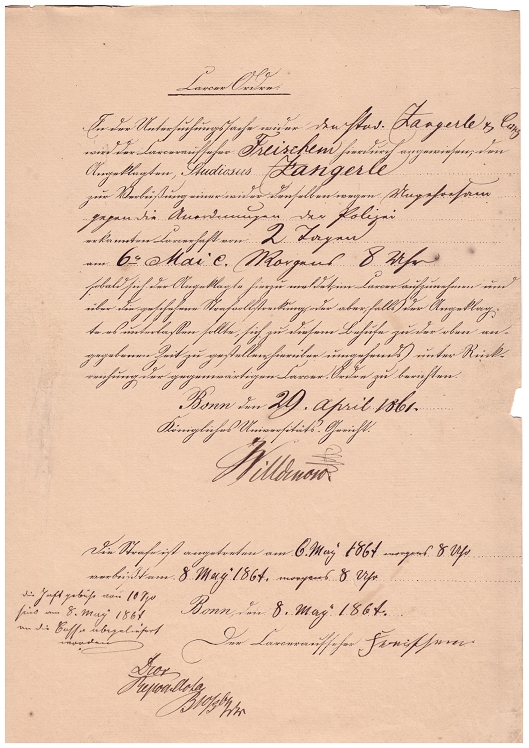 Carcer Ordre.
In der Untersuchungssache wider den stud. Zangerle & Cons.
wird der Carceraufseher Freischem hierdurch angewiesen, den
Angeklagten, Studiosus Zangerle
zur Verbüßung einer wider denselben wegen Ungehorsam
gegen die Anordnungen der Polizei
erkannten Carcerhaft von 2 Tagen
am 6ten Mai c. Morgens 8 Uhr
sobald sich der Angeklagte hierzu meldet, im Carcer aufzunehmen und
über die geschehene Strafvollstreckung, oder aber falls der Angeklag-
te es unterlassen sollte, sich zu diesem Behufe zu der oben an-
gegebenen Zeit zu gestellen, hierüber umgehends unter Rück-
reichung der gegenwärtigen Carcer Ordre zu berichten.
Bonn den 29. April 1861.
Königliches Universitäts-Gericht.
Willdenow
Die Strafe ist angetreten am 6. May 1861 morgens 8 Uhr
verbüßt am 8 May 1861. morgens 8 Uhr
die Haft gebühr von 10 Sgr
sind am 8. May 1861
an die Casse abgeliefert
worden
Bonn den 8. May 1861.
Der Carceraufseher Freischem